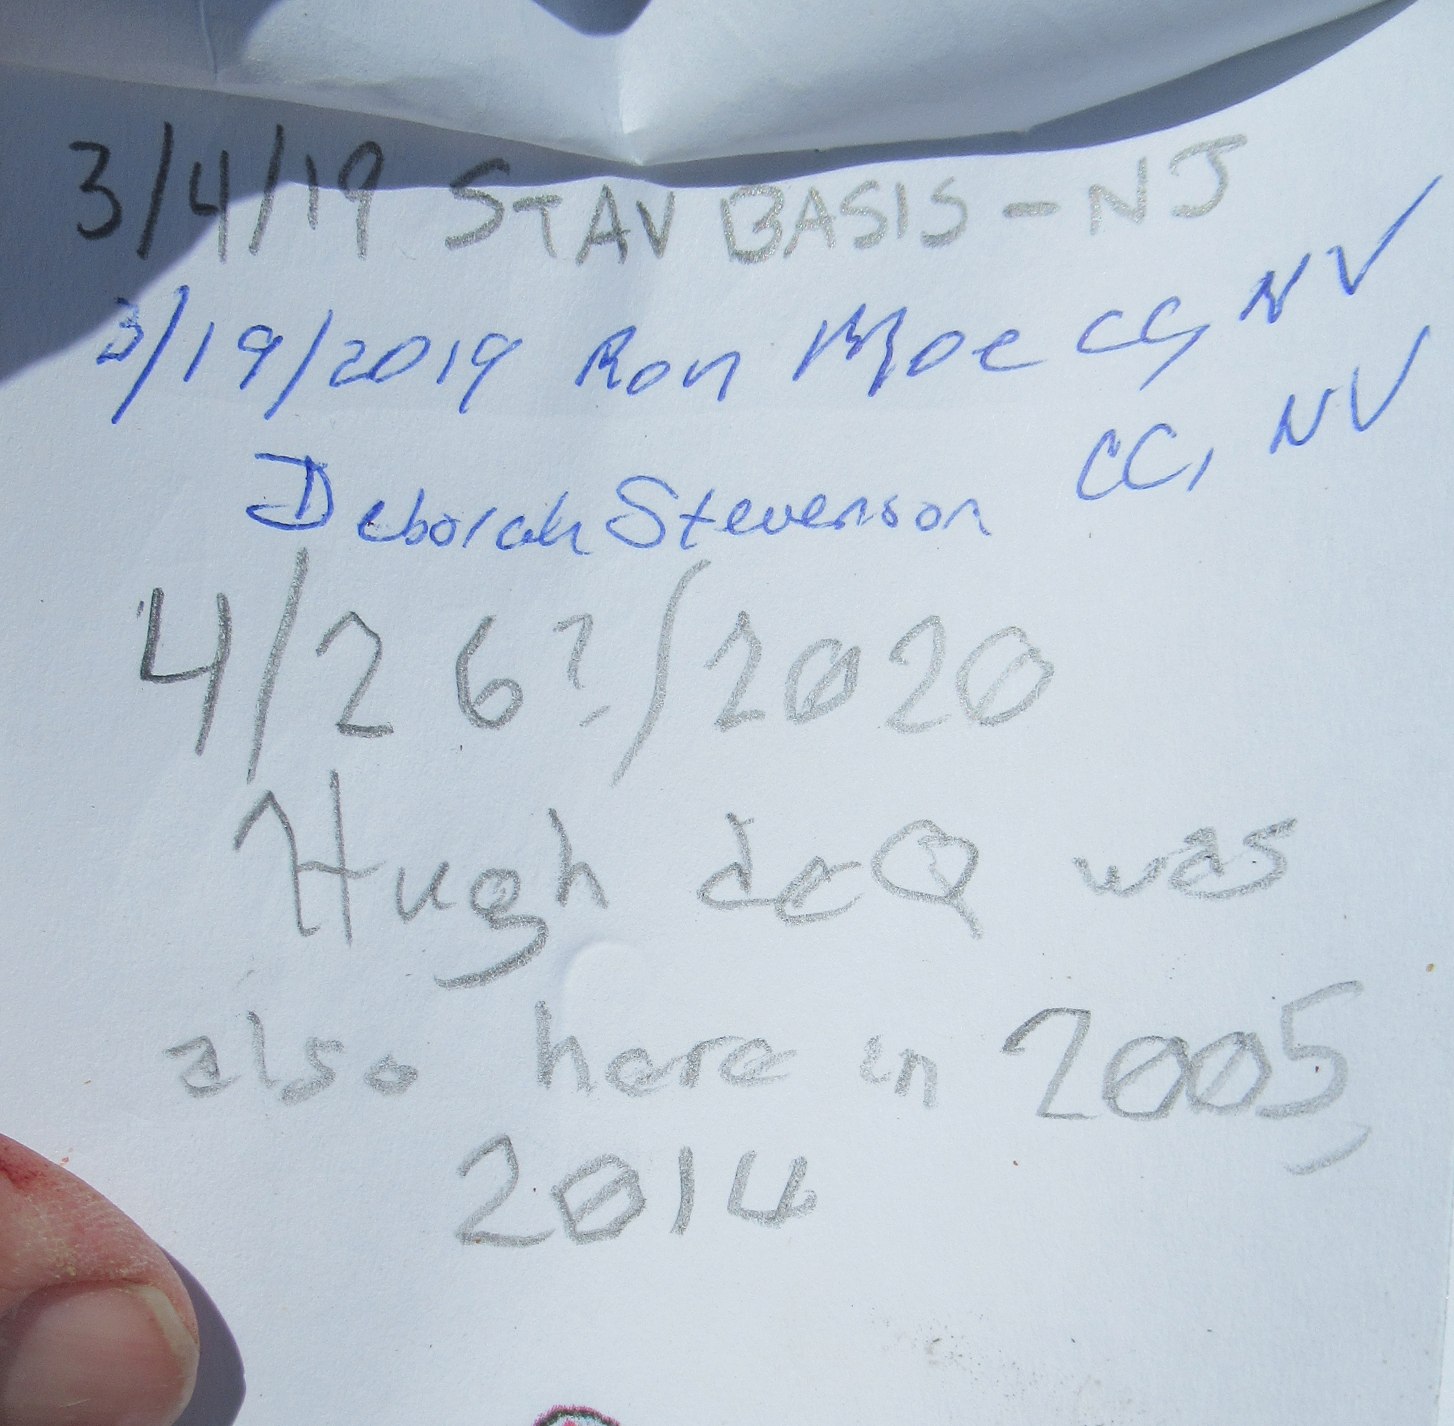 3/4/19 STAV BASIS - NJ
3/19/2019 Ron Moe CC, NV
Deborah Stevenson CC, NV
4/26?/2020
Hugh deQ was
also here in 2005,
2014